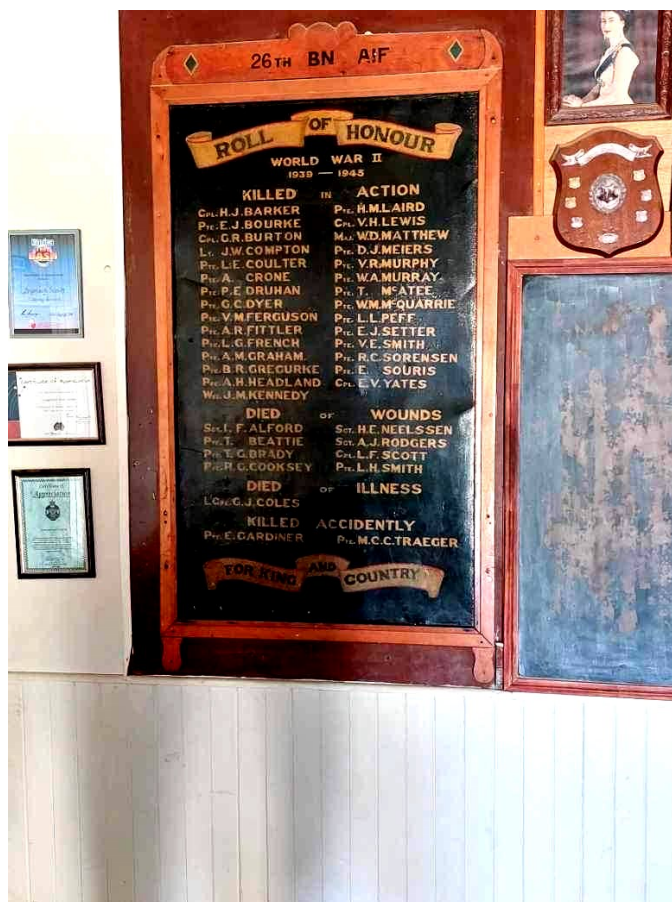 26TH BN AIF
ROLL OF HONOUR
WORLD WAR II
1939 — 1945
KILLED IN ACTION
CPL. H.J. BARKER
PTE. E.J. BOURKE
CPL. G.R. BURTON
LT. J.W. COMPTON
PTE. L.E. COULTER
PTE. A. CRONE
PTE. P.E. DRUHAN
PTE. G.C. DYER
PTE. V.M. FERGUSON
PTE. A.R. FITTLER
PTE. L.G. FRENCH
PTE. A.M. GRAHAM.
PTE. B.R. GREGURKE
PTE. A.H. HEADLAND
J.M. KENNEDY
PTE. H.M. LAIRD
CPL. V.H. LEWIS
MAJ. W.D. MATTHEW
PTE. D.J. MEIERS
PTE. V.R. MURPHY
PTE. W.A. MURRAY
PTE. T. McATEE
PTE. W.M. McQUARRIE
PTE. L.L. PEFF
PTE. E.J. SETTER
PTE. V.E. SMITH
PTE. R.C. SORENSEN
PTE. E. SOURIS
CPL. E.V. YATES
DIED OF WOUNDS
SGT. I.F. ALFORD
PTE. T. BEATTIE
PTE. T.G. BRADY
PTE. R.G. COOKSEY
SGT. H.E. NEELSSEN
SGT. A.J. RODGERS
CPL. L.F. SCOTT
PTE. L.H. SMITH
DIED OF ILLNESS
LCPL. G.J. COLES
KILLED ACCIDENTLY
PTE. E. GARDINER
PTE. M.C.C. TRAEGER
FOR KING AND COUNTRY
Certificate of Appreciation
Appreciation